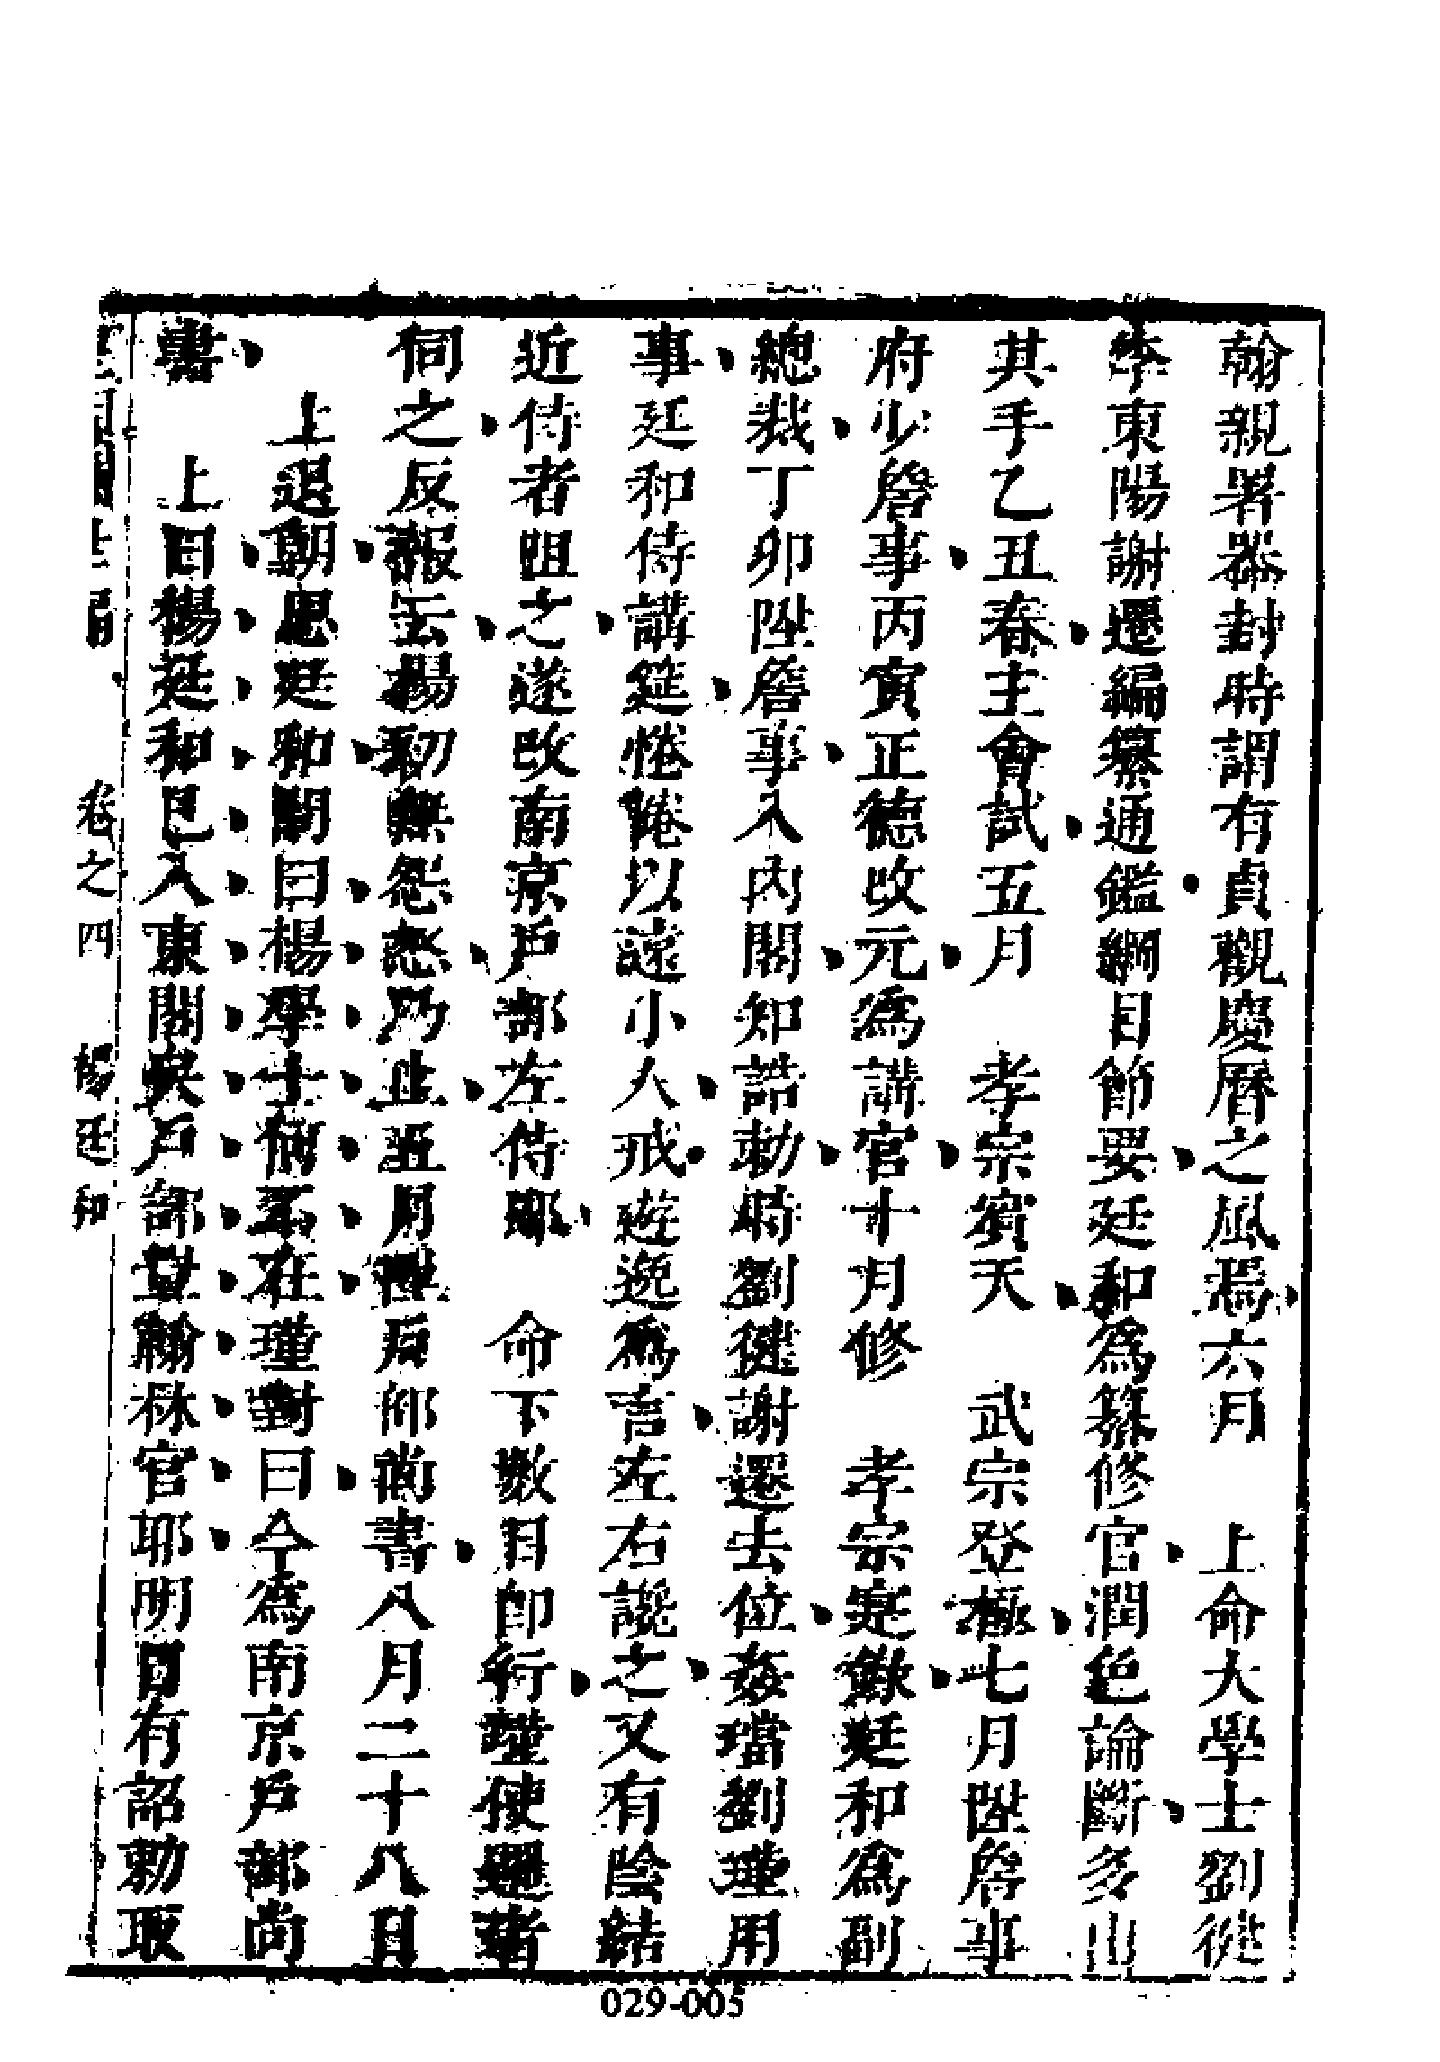 翰親署器封時謂有貞觀慶曆之風焉六月　上命大學士劉健
李東陽謝遷編纂通鑑綱目節要廷和爲纂修官潤色論斷多出
其手乙丑春主會試五月　孝宗賓天　武宗登極七月陞詹事
府少詹事丙寅正德改元爲講官十月修　孝宗寔錄廷和爲副
總裁丁卯陞詹事入內閣知誥勅時劉健謝遷去位姦璫劉瑾用
事廷和侍講筵惓惓以遠小人戒遊逸爲言左右讒之又有陰結
近侍者咀之遂改南京戶部左侍郎　命下數日卽行瑾使邏者
伺之反報云楊初無怨懟乃止五月陞戶部尚書八月二十八日
上退朝思廷和問曰楊學士何不在瑾對曰今爲南京戶部尚
書　上曰楊廷和已入東閣與戶部豈翰林官耶明日有詔勅取
卷之四　楊廷和
029-005